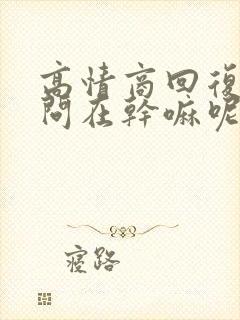 高情商回復
問在幹嘛呢
寢路